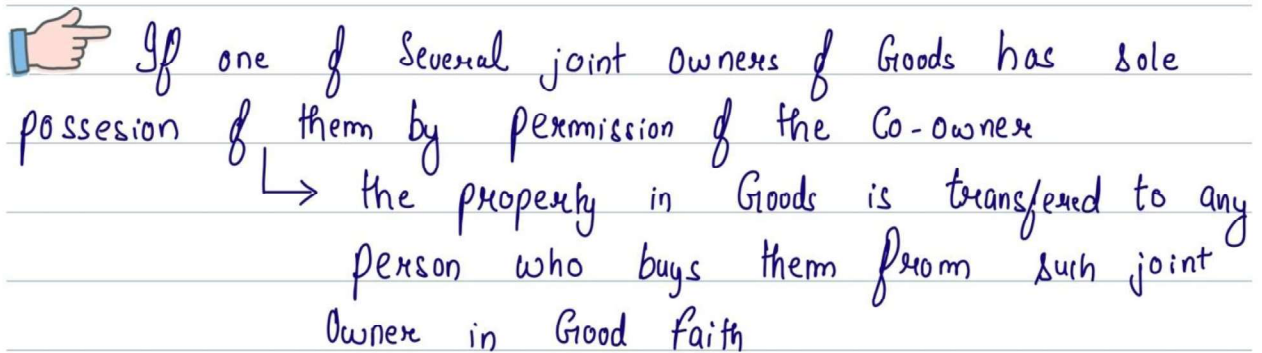 If one of Several joint owners of Goods has sole
possesion of them by permission of the Co-owner
the property in Goods is transfered to any
person who buys them from such joint
Owner in Good faith